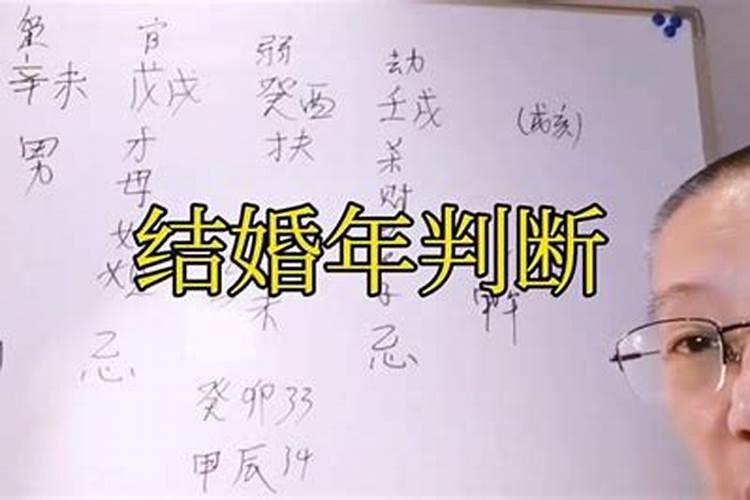 官 弱 劫
辛未 戊戌 癸酉 壬戌 (戌亥)
男 才 扶 杀
母 财
结婚年判断
未
忌 忌
癸卯33
甲辰34